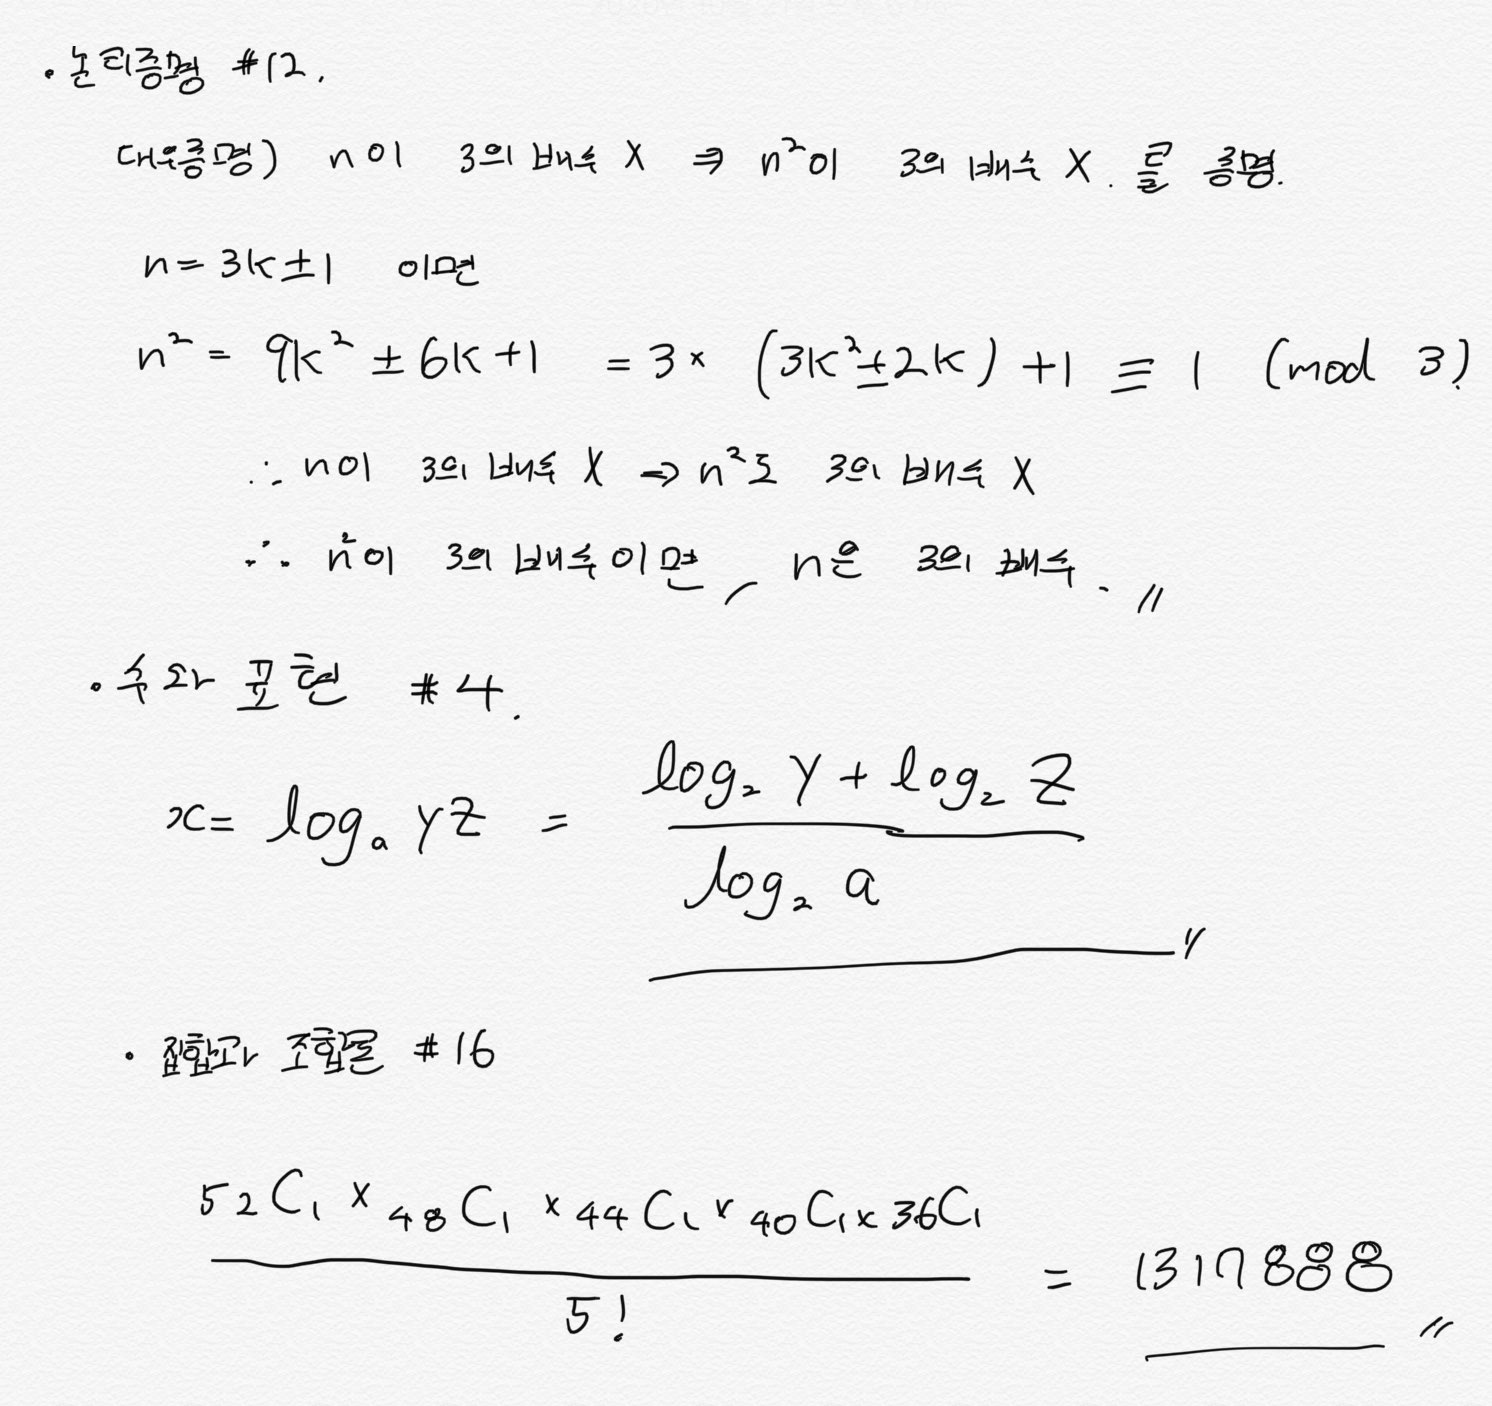 · 논리증명 #12.
대우증명) n이 3의 배수 X ⇒ n²이 3의 배수 X. 를 증명.
n = 3k±1 이면
n² = 9k² ± 6k + 1 = 3 × (3k² ± 2k) + 1 ≡ 1 (mod 3)
∴ n이 3의 배수 X → n²도 3의 배수 X
∴ n²이 3의 배수이면, n은 3의 배수. //
· 수와 표현 #4.
x = logₐ yz = (log₂ y + log₂ z) / (log₂ a) //
· 집합과 조합론 #16
(₅₂C₁ × ₄₈C₁ × ₄₄C₁ × ₄₀C₁ × ₃₆C₁) / 5! = 1317888 //